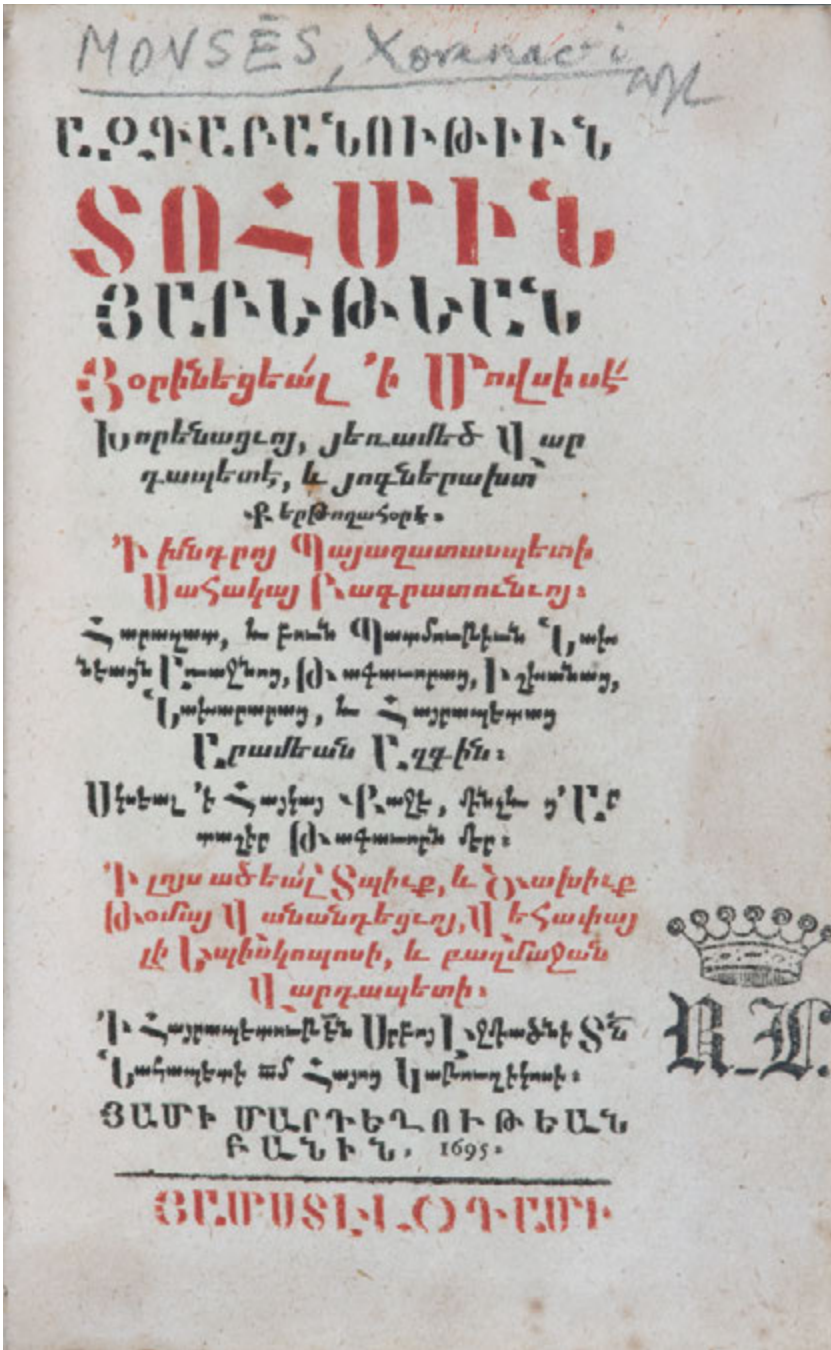 MOVSĒS, Xorenac'i
ԱԶԳԱԲԱՆՈՒԹԻՒՆ
ՏՈՀՄԻՆ
ՅԱԲԵԹԵԱՆ
Յօրինեցեալ ՚ի Մովսիսէ
Խորենացւոյ, յեռամեծ Վար
դապետէ, և յոգներախտ
Քերթողահօրէ։
՚Ի խնդրոյ Պայազատասպետի
Սահակայ Բագրատունւոյ։
Հարազատ, և բուն Պատմութիւն Նախ
նեացն Առաջնոց, Թագաւորաց, Իշխանաց,
Նախարարաց, և Հայրապետաց
Արամեան Ազգին։
Սկսեալ ՚ի Հայկայ Քաջէ, մինչև ց՚Ար
տաշէր Թագաւորն մեր։
՚Ի լոյս ածեալ Տպիւք, և Ծախիւք
Թօմայ Վանանդեցւոյ, Վեհափայ
լի Եպիսկոպոսի, և բազմաջան
Վարդապետի։
՚Ի Հայրապետութե Սրբոյ Էջմիածնի Տն
Նահապետի ամ Հայոց Կաթուղիկոսի։
ՅԱՄԻ ՄԱՐԴԵՂՈՒԹԵԱՆ
ԲԱՆԻՆ. 1695։
ՅԱՄՍՏԷԼՕԴԱՄԻ